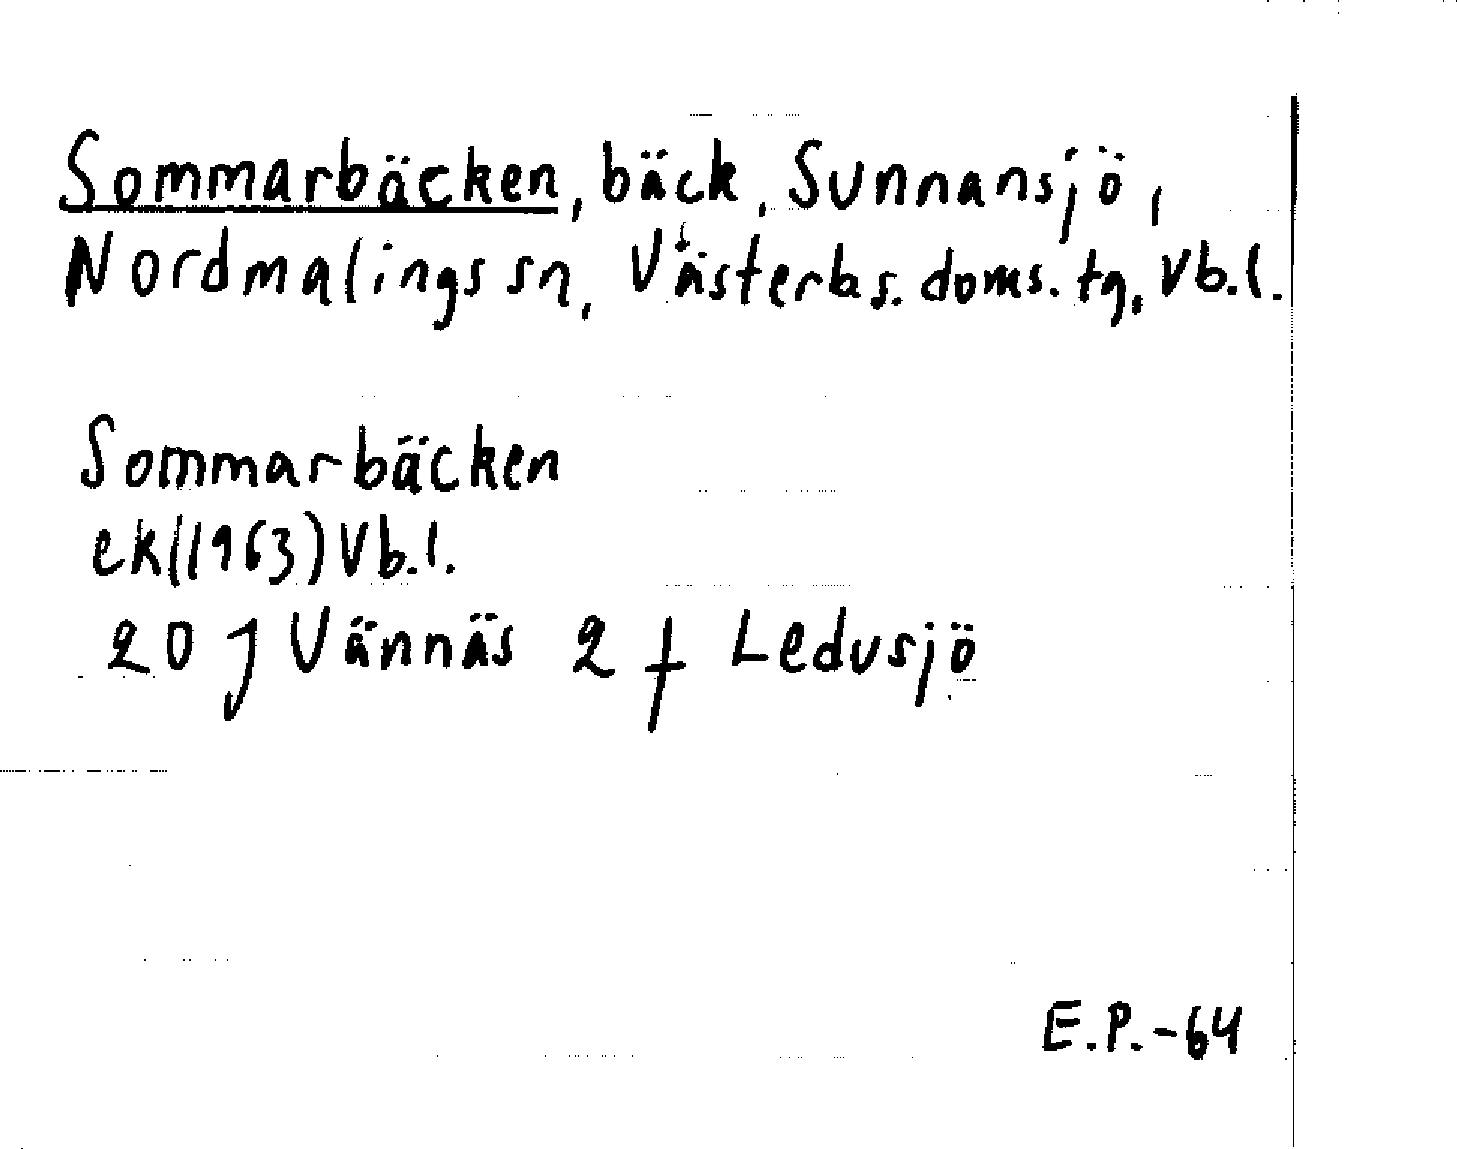 Sommarbäcken, bäck, Sunnansjö,
Nordmalings sn, Västerbs. doms. tg, Vb.l.
Sommarbäcken
ek(1963) Vb.l.
20 J Vännäs 2 f Ledusjö
E.P.-64